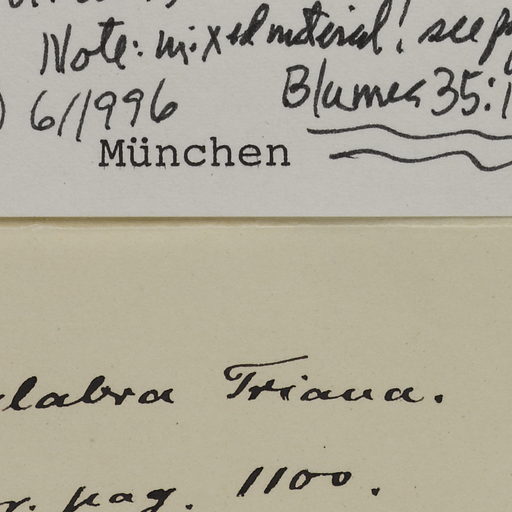 Note: mixed material! see
) 6/1996 Blumea 35:1
München
glabra Triana.
pag. 1100.